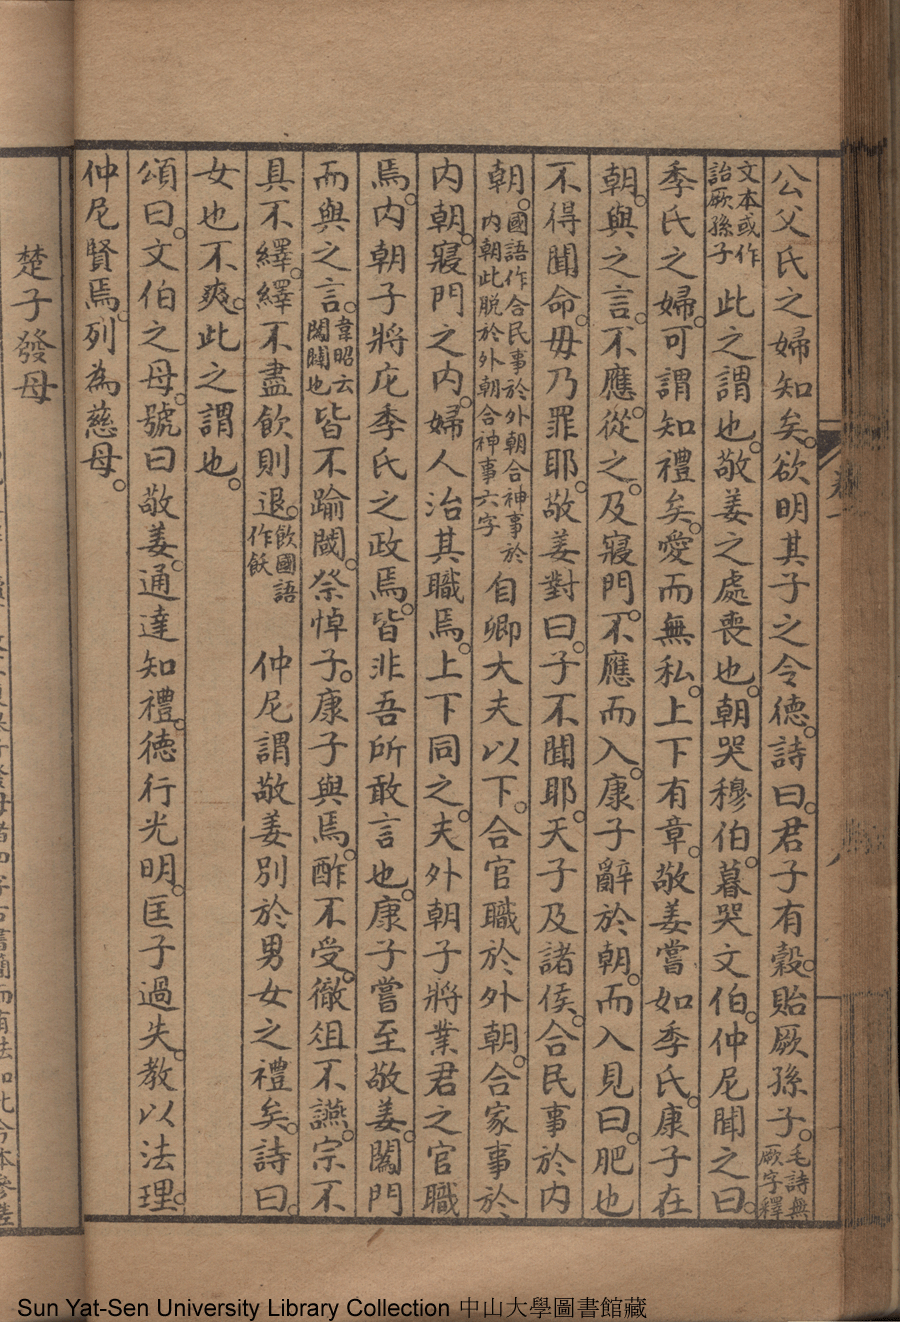 公父氏之婦知矣。欲明其子之令德。詩曰。君子有穀。貽厥孫子。毛詩無厥字釋
文本或作詒厥孫子 此之謂也。敬姜之處喪也。朝哭穆伯。暮哭文伯。仲尼聞之曰。
季氏之婦。可謂知禮矣。愛而無私。上下有章。敬姜嘗如季氏。康子在
朝。與之言。不應。從之。及寢門。不應而入。康子辭於朝。而入見曰。肥也
不得聞命。毋乃罪耶。敬姜對曰。子不聞耶。天子及諸侯。合民事於內
朝。國語作合民事於外朝合神事於內朝此脫於外朝合神事六字 自卿大夫以下。合官職於外朝。合家事於
內朝。寢門之內。婦人治其職焉。上下同之。夫外朝子將業君之官職
焉。內朝子將庀季氏之政焉。皆非吾所敢言也。康子嘗至敬姜。闖門
而與之言。韋昭云闖闢也 皆不踰閾。祭悼子。康子與焉。酢不受。徹俎不讌。宗不
具不繹。繹不盡飲則退。飲國語作飫 仲尼謂敬姜別於男女之禮矣。詩曰。
女也不爽。此之謂也。
頌曰。文伯之母。號曰敬姜。通達知禮。德行光明。匡子過失。教以法理。
仲尼賢焉。列為慈母。
楚子發母
Sun Yat-Sen University Library Collection 中山大學圖書館藏